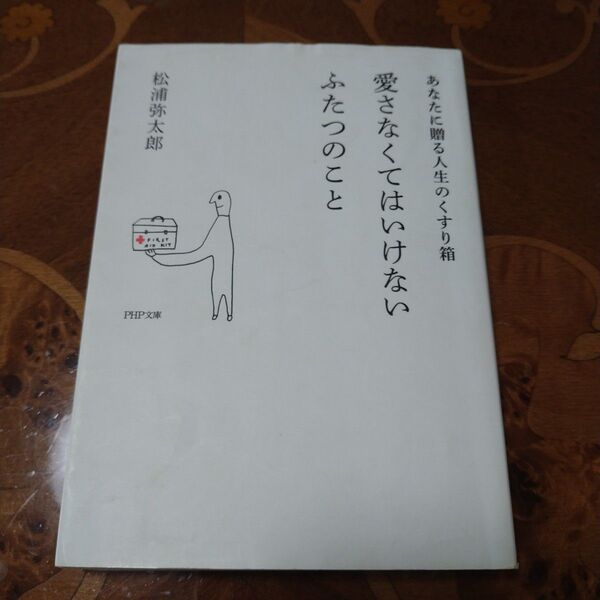 あなたに贈る人生のくすり箱
愛さなくてはいけない
ふたつのこと
松浦弥太郎
FIRST
AID KIT
PHP文庫